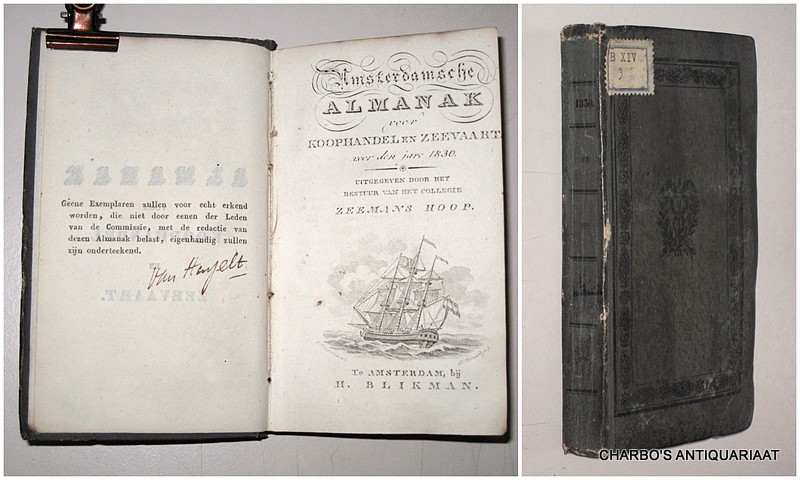 Geene Exemplaren zullen voor echt erkend
worden, die niet door eenen der Leden
van de Commissie, met de redactie van
dezen Almanak belast, eigenhandig zullen
zijn onderteekend.
Amsterdamsche
ALMANAK
voor
KOOPHANDEL EN ZEEVAART
voor den jare 1830.
UITGEGEVEN DOOR HET
BESTUUR VAN HET COLLEGIE
ZEEMANS HOOP.
Te AMSTERDAM, bij
H. BLIKMAN.
B XIV
1830.
CHARBO'S ANTIQUARIAAT